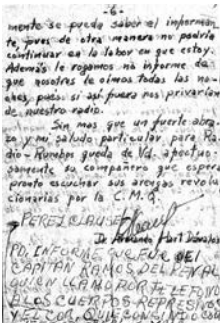 -6-
mente se pueda saber el informan-
te pues de otra manera no podría
continuar en la labor en que estoy.
Además le rogamos no informe de
que nosotros le oimos todas las no-
ches, pues si así fuera nos privarían
de nuestro radio.
Sin mas que un fuerte abra-
zo y mi saludo particular para Ra-
dio-Rumbos queda de Vd. afectuo-
samente su compañero que espera
pronto escuchar sus arengas revolu
cionarias por la C.M.Q.
PEREZ CLAUSEL
Dr. Armando Hart Dávalos
PD. INFORME QUE FUE DEL
CAPITAN RAMOS DEL PENAL
QUIEN LLAMO POR TELEFONO
A LOS CUERPOS REPRESIVOS
Y EL COR. QUIEN